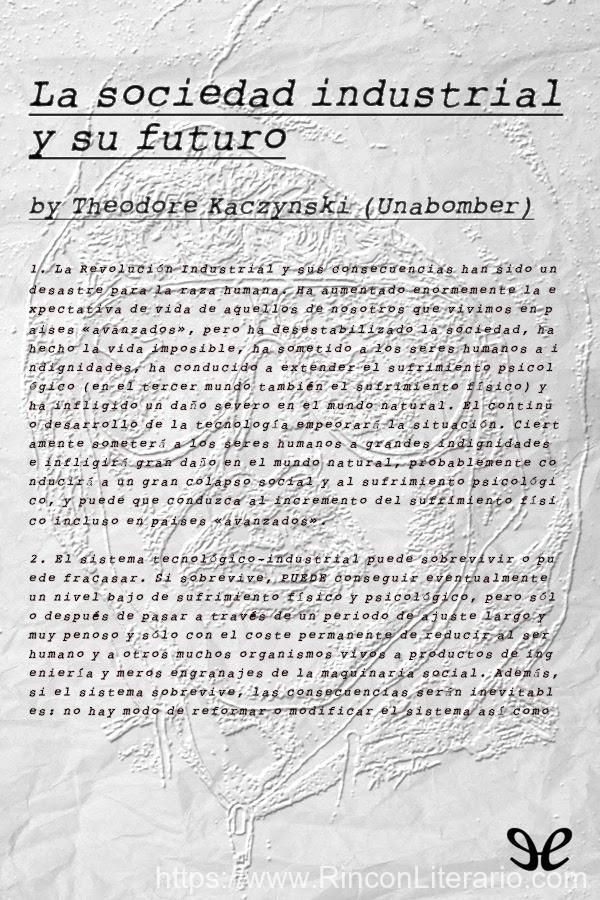 La sociedad industrial
y su futuro
by Theodore Kaczynski (Unabomber)
1. La Revolución Industrial y sus consecuencias han sido un
desastre para la raza humana. Ha aumentado enormemente la e
xpectativa de vida de aquellos de nosotros que vivimos en p
aises «avanzados», pero ha desestabilizado la sociedad, ha
hecho la vida imposible, ha sometido a los seres humanos a i
ndignidades, ha conducido a extender el sufrimiento psicol
ógico (en el tercer mundo también el sufrimiento físico) y
ha infligido un daño severo en el mundo natural. El continu
o desarrollo de la tecnología empeorará la situación. Ciert
amente someterá a los seres humanos a grandes indignidades
e infligirá gran daño en el mundo natural, probablemente co
nducirá a un gran colapso social y al sufrimiento psicológi
co, y puede que conduzca al incremento del sufrimiento físi
co incluso en paises «avanzados».
2. El sistema tecnológico-industrial puede sobrevivir o pu
ede fracasar. Si sobrevive, PUEDE conseguir eventualmente
un nivel bajo de sufrimiento físico y psicológico, pero sól
o después de pasar a través de un periodo de ajuste largo y
muy penoso y sólo con el coste permanente de reducir al ser
humano y a otros muchos organismos vivos a productos de ing
eniería y meros engranajes de la maquinaria social. Además,
si el sistema sobrevive, las consecuencias serán inevitabl
es: no hay modo de reformar o modificar el sistema así como
https://www.RinconLiterario.com